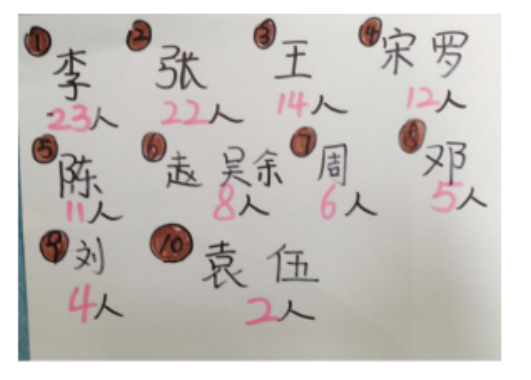 ① 李 ② 张 ③ 王 ④ 宋 罗
23人 22人 14人 12人
⑤ 陈 ⑥ 赵 吴 余 ⑦ 周 ⑧ 邓
11人 8人 6人 5人
⑨ 刘 ⑩ 袁 伍
4人 2人